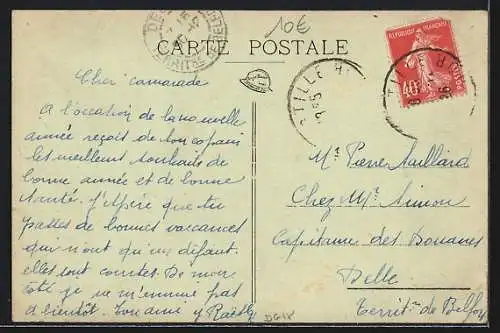 10€
CARTE POSTALE
REPUBLIQUE FRANÇAISE
40c
Cher camarade
A l'occasion de la nouvelle
année reçoit de ton copain
les meilleurs souhaits de
bonne année et de bonne
santé. J'espère que tu
passes de bonnes vacances
qui n'ont qu'un défaut.
elles sont courtes. De mon
côté je ne m'ennuie pas
a bientôt. Ton ami
Mr Pierre Maillard
Chez Mr Simon
Capitaine des Douanes
Delle
Territ. de Belfort